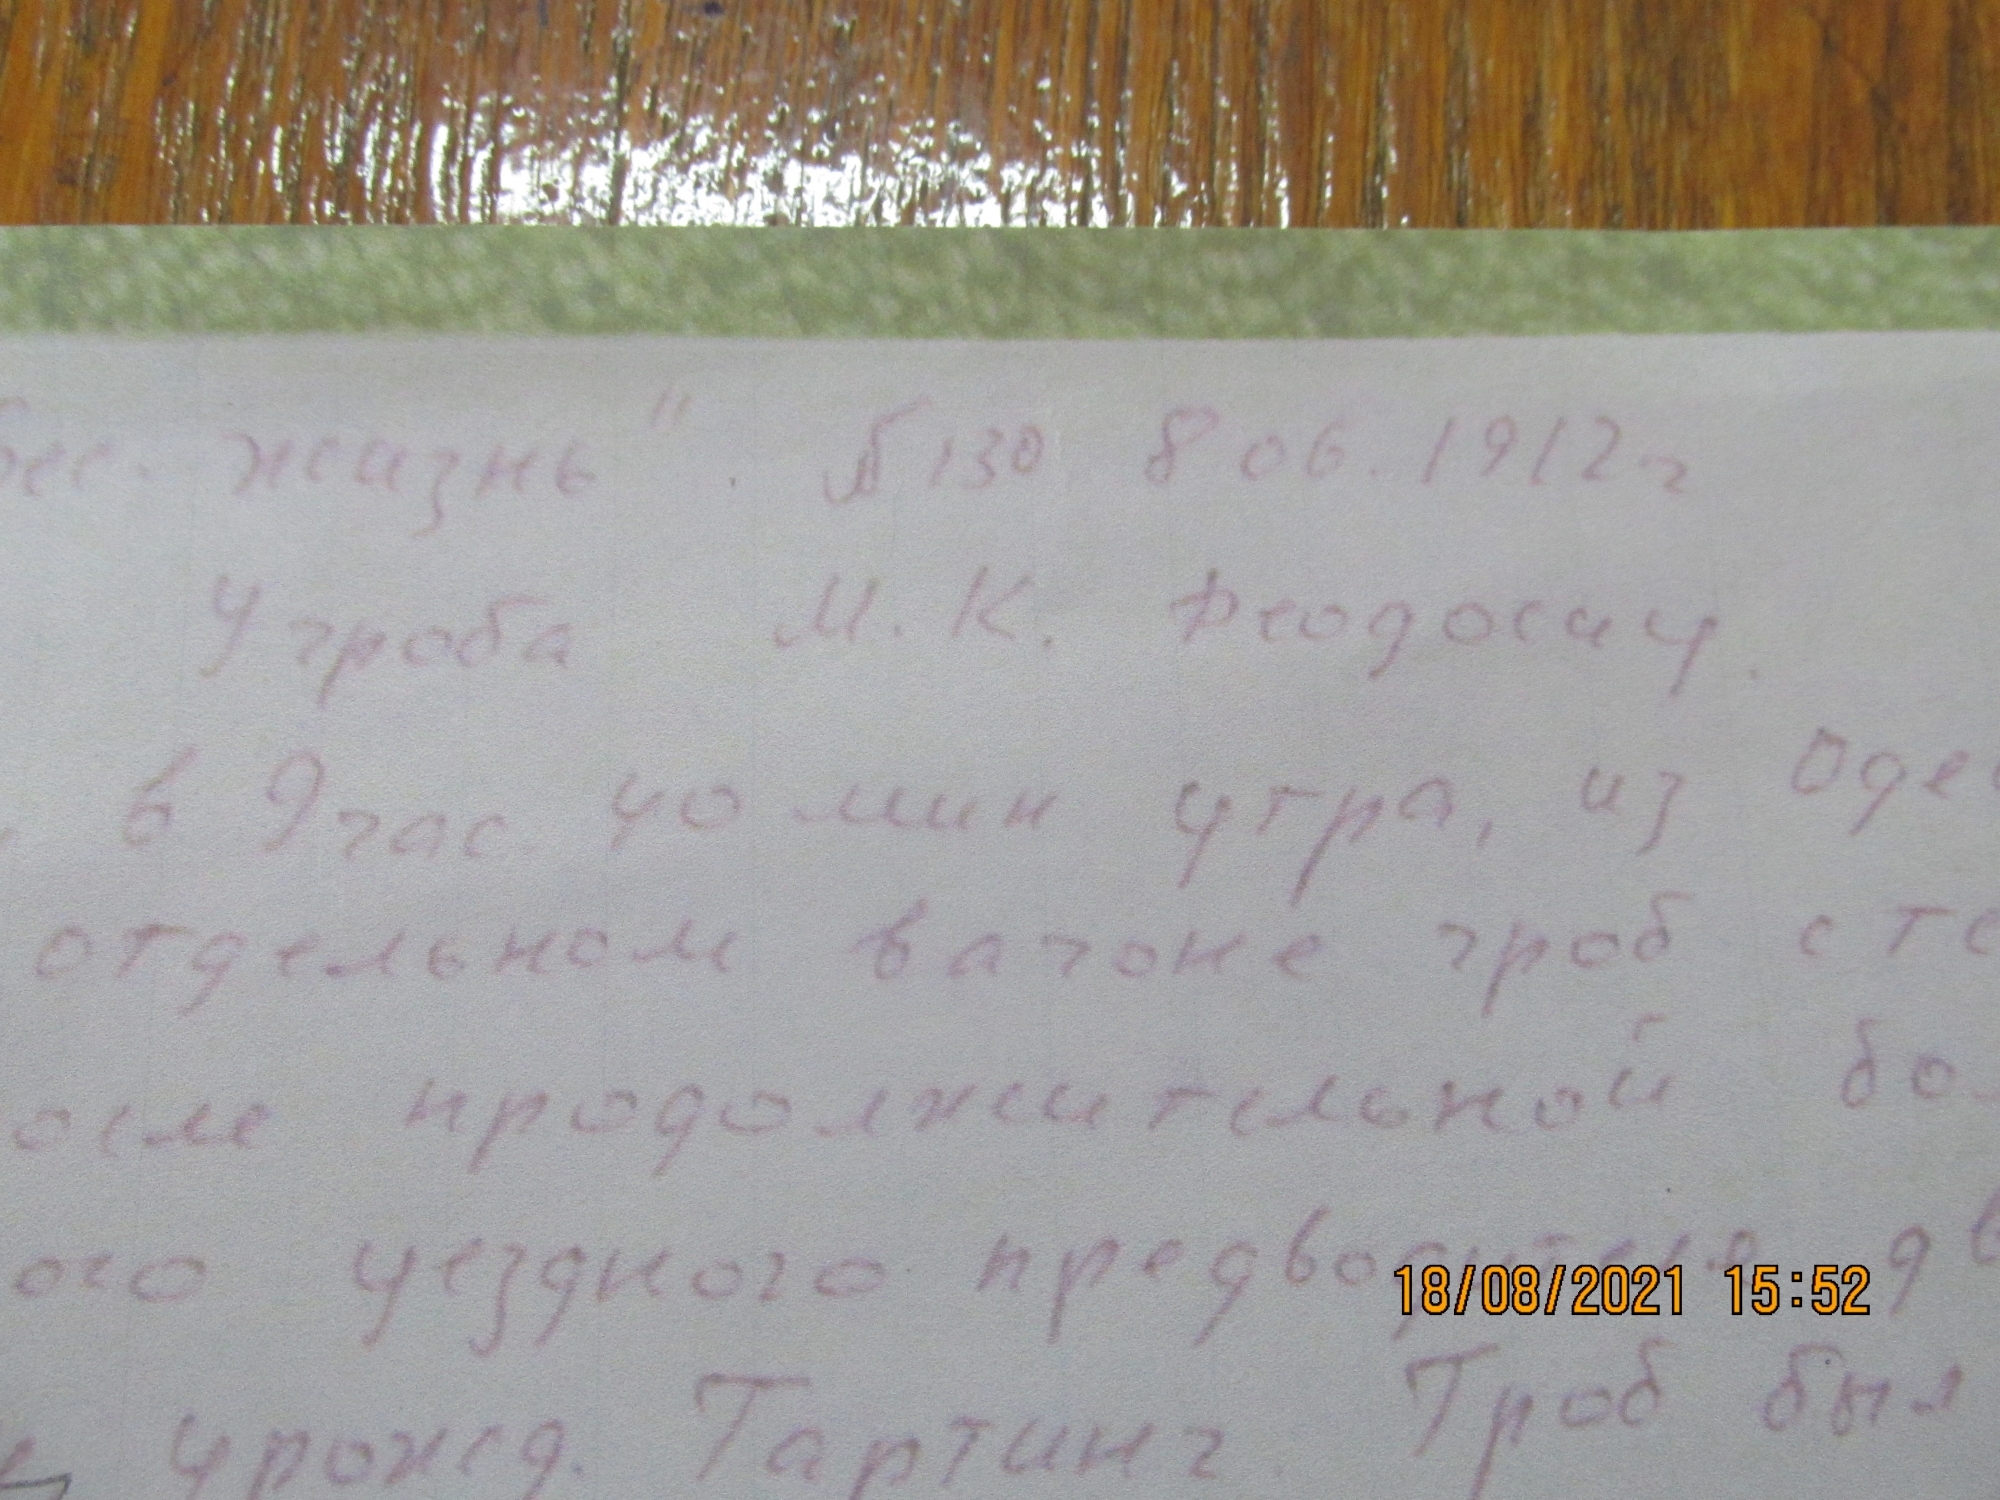 бес. жизнь". № 130 8 06. 1912 г
У гроба М. К. Феодосиу.
, в 9 час 40 мин утра, из Оде
отдельном вагоне гроб с те
осле продолжительной бо
ого уездного предводителя дв
урожд. Гартинг. Гроб был
18/08/2021 15:52